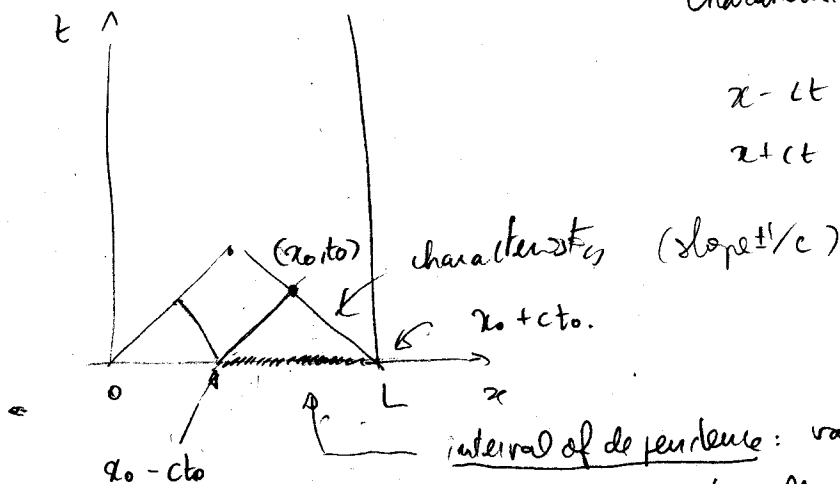 t
x - ct
x + ct
(x₀, t₀)
characteristics (slope ±1/c)
x₀ + ct₀.
0
L
x
interval of dependence:
x₀ - ct₀